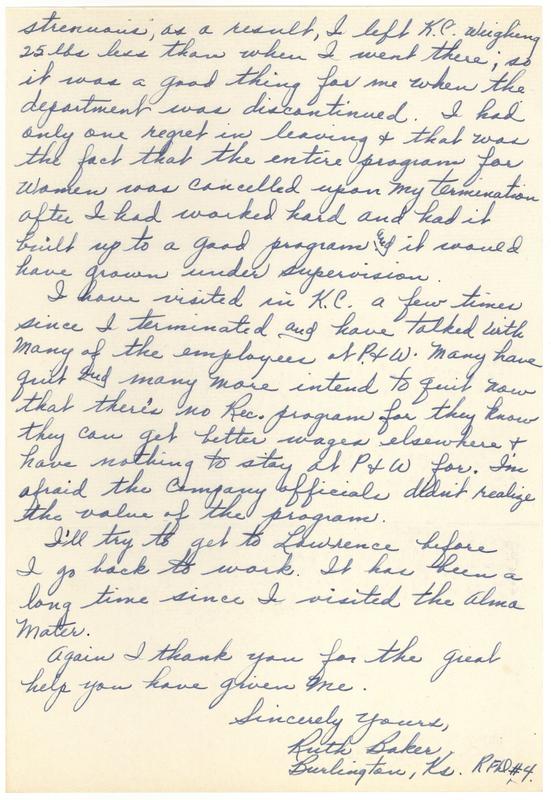 strenuous, as a result, I left K.C. weighing
25 lbs less than when I went there; so
it was a good thing for me when the
department was discontinued. I had
only one regret in leaving & that was
the fact that the entire program for
Women was cancelled upon my termination
after I had worked hard and had it
built up to a good program and it would
have grown under supervision.
I have visited in K.C. a few times
since I terminated and have talked with
many of the employees at P.&W. Many have
quit and many more intend to quit now
that there's no Rec. program for they know
they can get better wages elsewhere &
have nothing to stay at P&W for. I'm
afraid the Company officials didn't realize
the value of the program.
I'll try to get to Lawrence before
I go back to work. It has been a
long time since I visited the Alma
Mater.
Again I thank you for the great
help you have given me.
Sincerely Yours,
Ruth Baker,
Burlington, Ks. RFD #4.